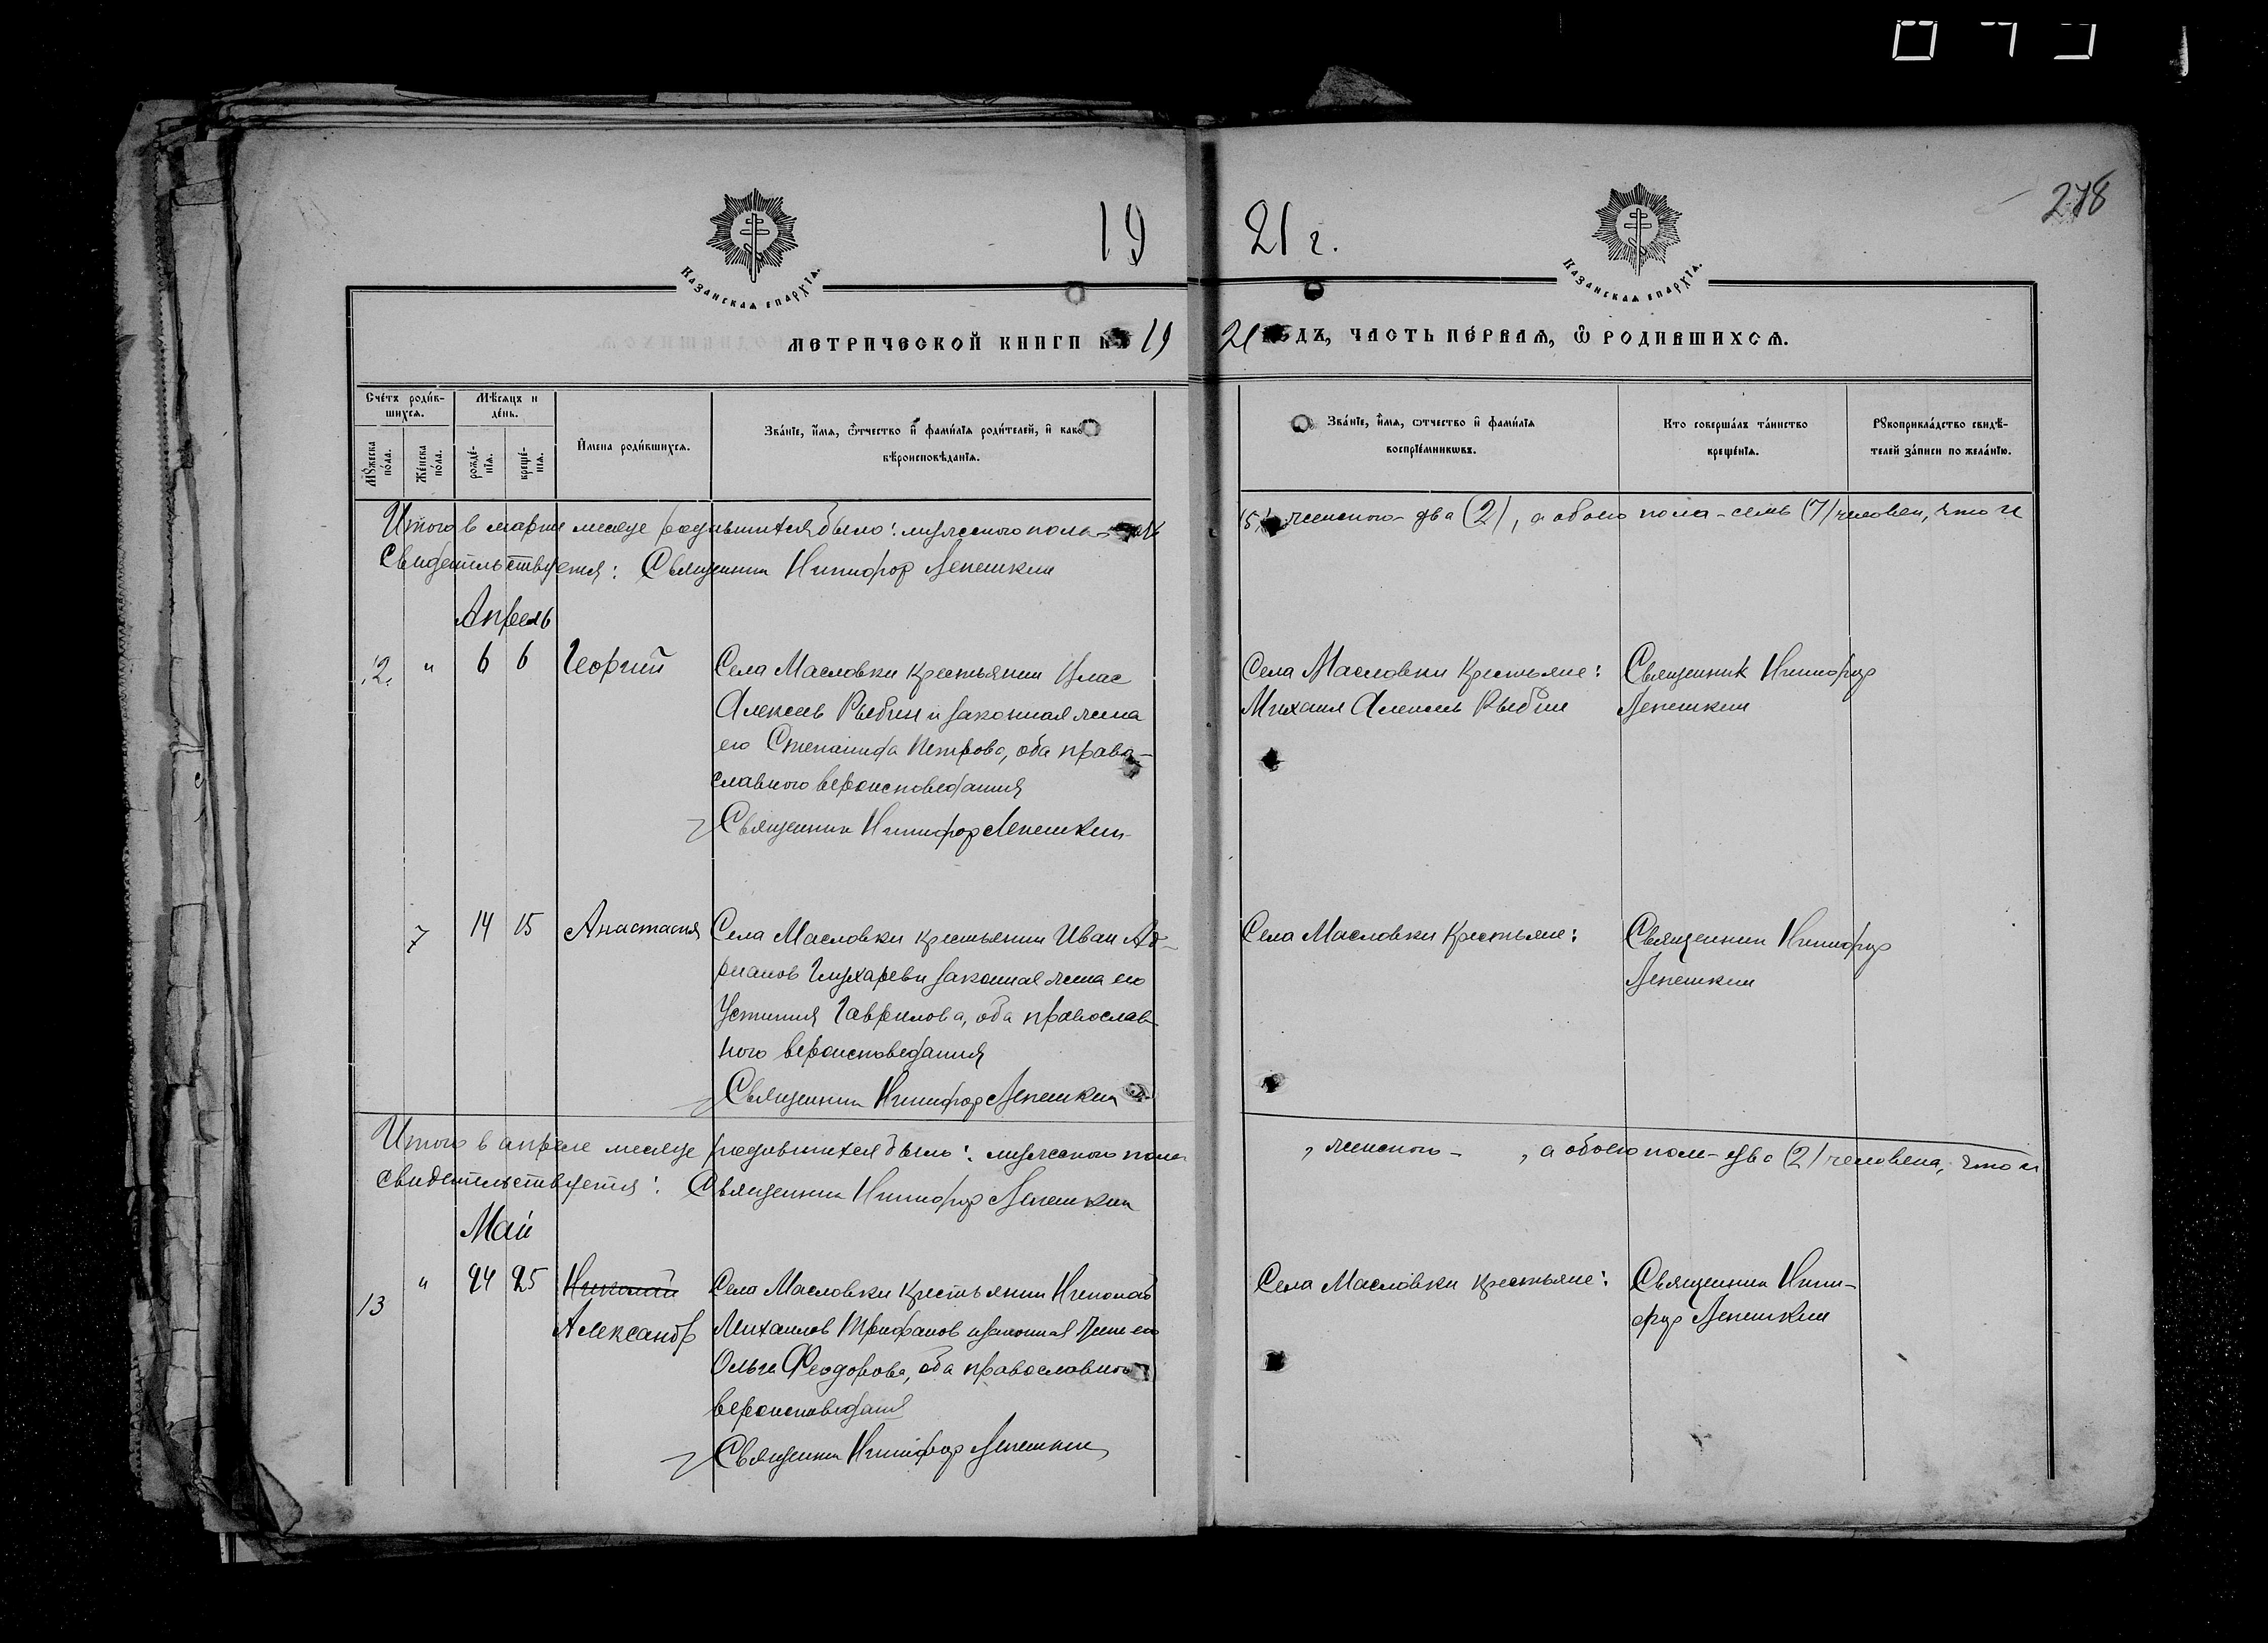 278
19 21 г.
Казанская епархїа.
Казанская епархїа.
МЕТРИЧЕСКОЙ КНИГИ НА 19 21 ГОДЪ, ЧАСТЬ ПЕ́РВАЯ, Ѽ РОДИВШИХСЯ.
Сче́тъ роди́в-
шихся.
Мѣсяцъ и
де́нь.
Мꙋ́жеска по́ла.
Же́нска по́ла.
рожде́-
нїя.
креще́-
нїя.
И҆мена роди́вшихся.
Зва́нїе, и҆́мя, ѻ҆́тчество и҆ фами́лїя роди́телей, и҆ како
вѣроисповѣ́данїя.
Зва́нїе, и҆́мя, ѻтчество и҆ фами́лїя
воспрїе́мниковъ.
Кто соверша́лъ та́инство
креще́нїя.
Рꙋкоприкла́дство свидѣ́-
телей за́писи по жела́нїю.
Итого в марте месяце родившихся было: мужеского пола - пять (5), женского - два (2), а обоего пола - семь (7) человек, что и
Свидетельствуется: Священник Никифор Лепешкин
Апрель
12. " 6 6 Георгий
Села Масловки крестьянин Влас
Алексеев Рыбин и законная жена
его Степанида Петрова, оба право-
славного вероисповедания
Священник Никифор Лепешкин
Села Масловки крестьяне:
Михаил Алексеев Рыбин
Священник Никифор
Лепешкин
7 14 15 Анастасия
Села Масловки крестьянин Иван Ад-
рианов Глухарев и законная жена его
Устиния Гаврилова, оба православ-
ного вероисповедания
Священник Никифор Лепешкин
Села Масловки крестьяне:
Священник Никифор
Лепешкин
Итого в апреле месяце родившихся было: мужеского пола , женского - , а обоего пола - два (2) человека, что и
свидетельствуется: Священник Никифор Лепешкин
Май
13 " 24 25 Николай
Александр
Села Масловки крестьянин Николай
Михаилов Трифанов и законная жена его
Ольга Феодорова, оба православного
вероисповедания
Священник Никифор Лепешкин
Села Масловки крестьяне:
Священник Ники-
фор Лепешкин